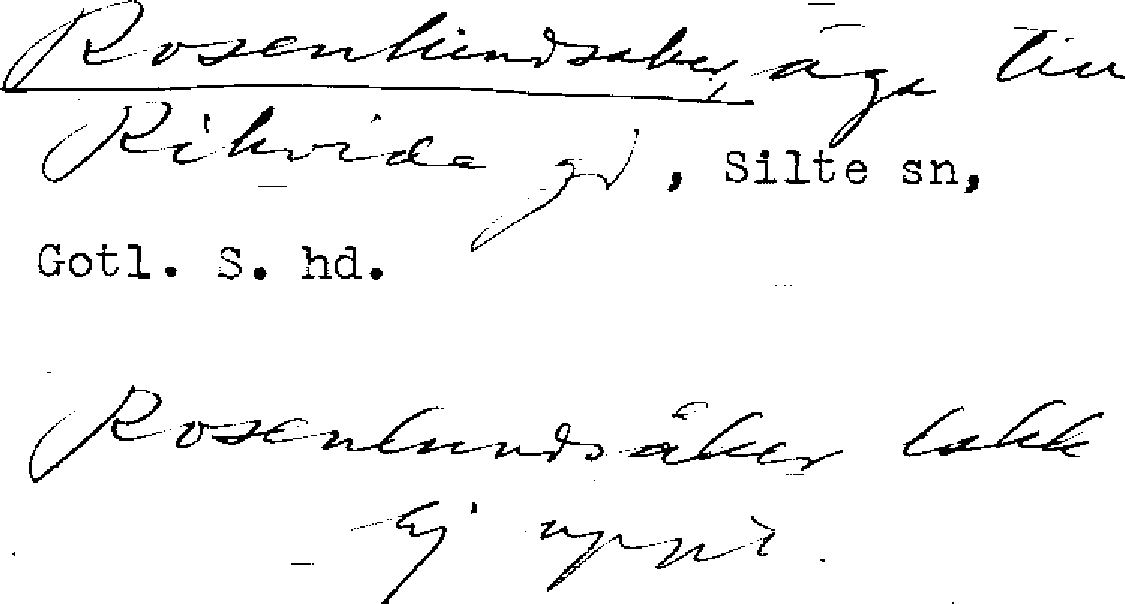 Rosenlundsåker, äga till
Rikvide gd, Silte sn,
Gotl. S. hd.
Rosenlundsåker lskk
Ej uppt.